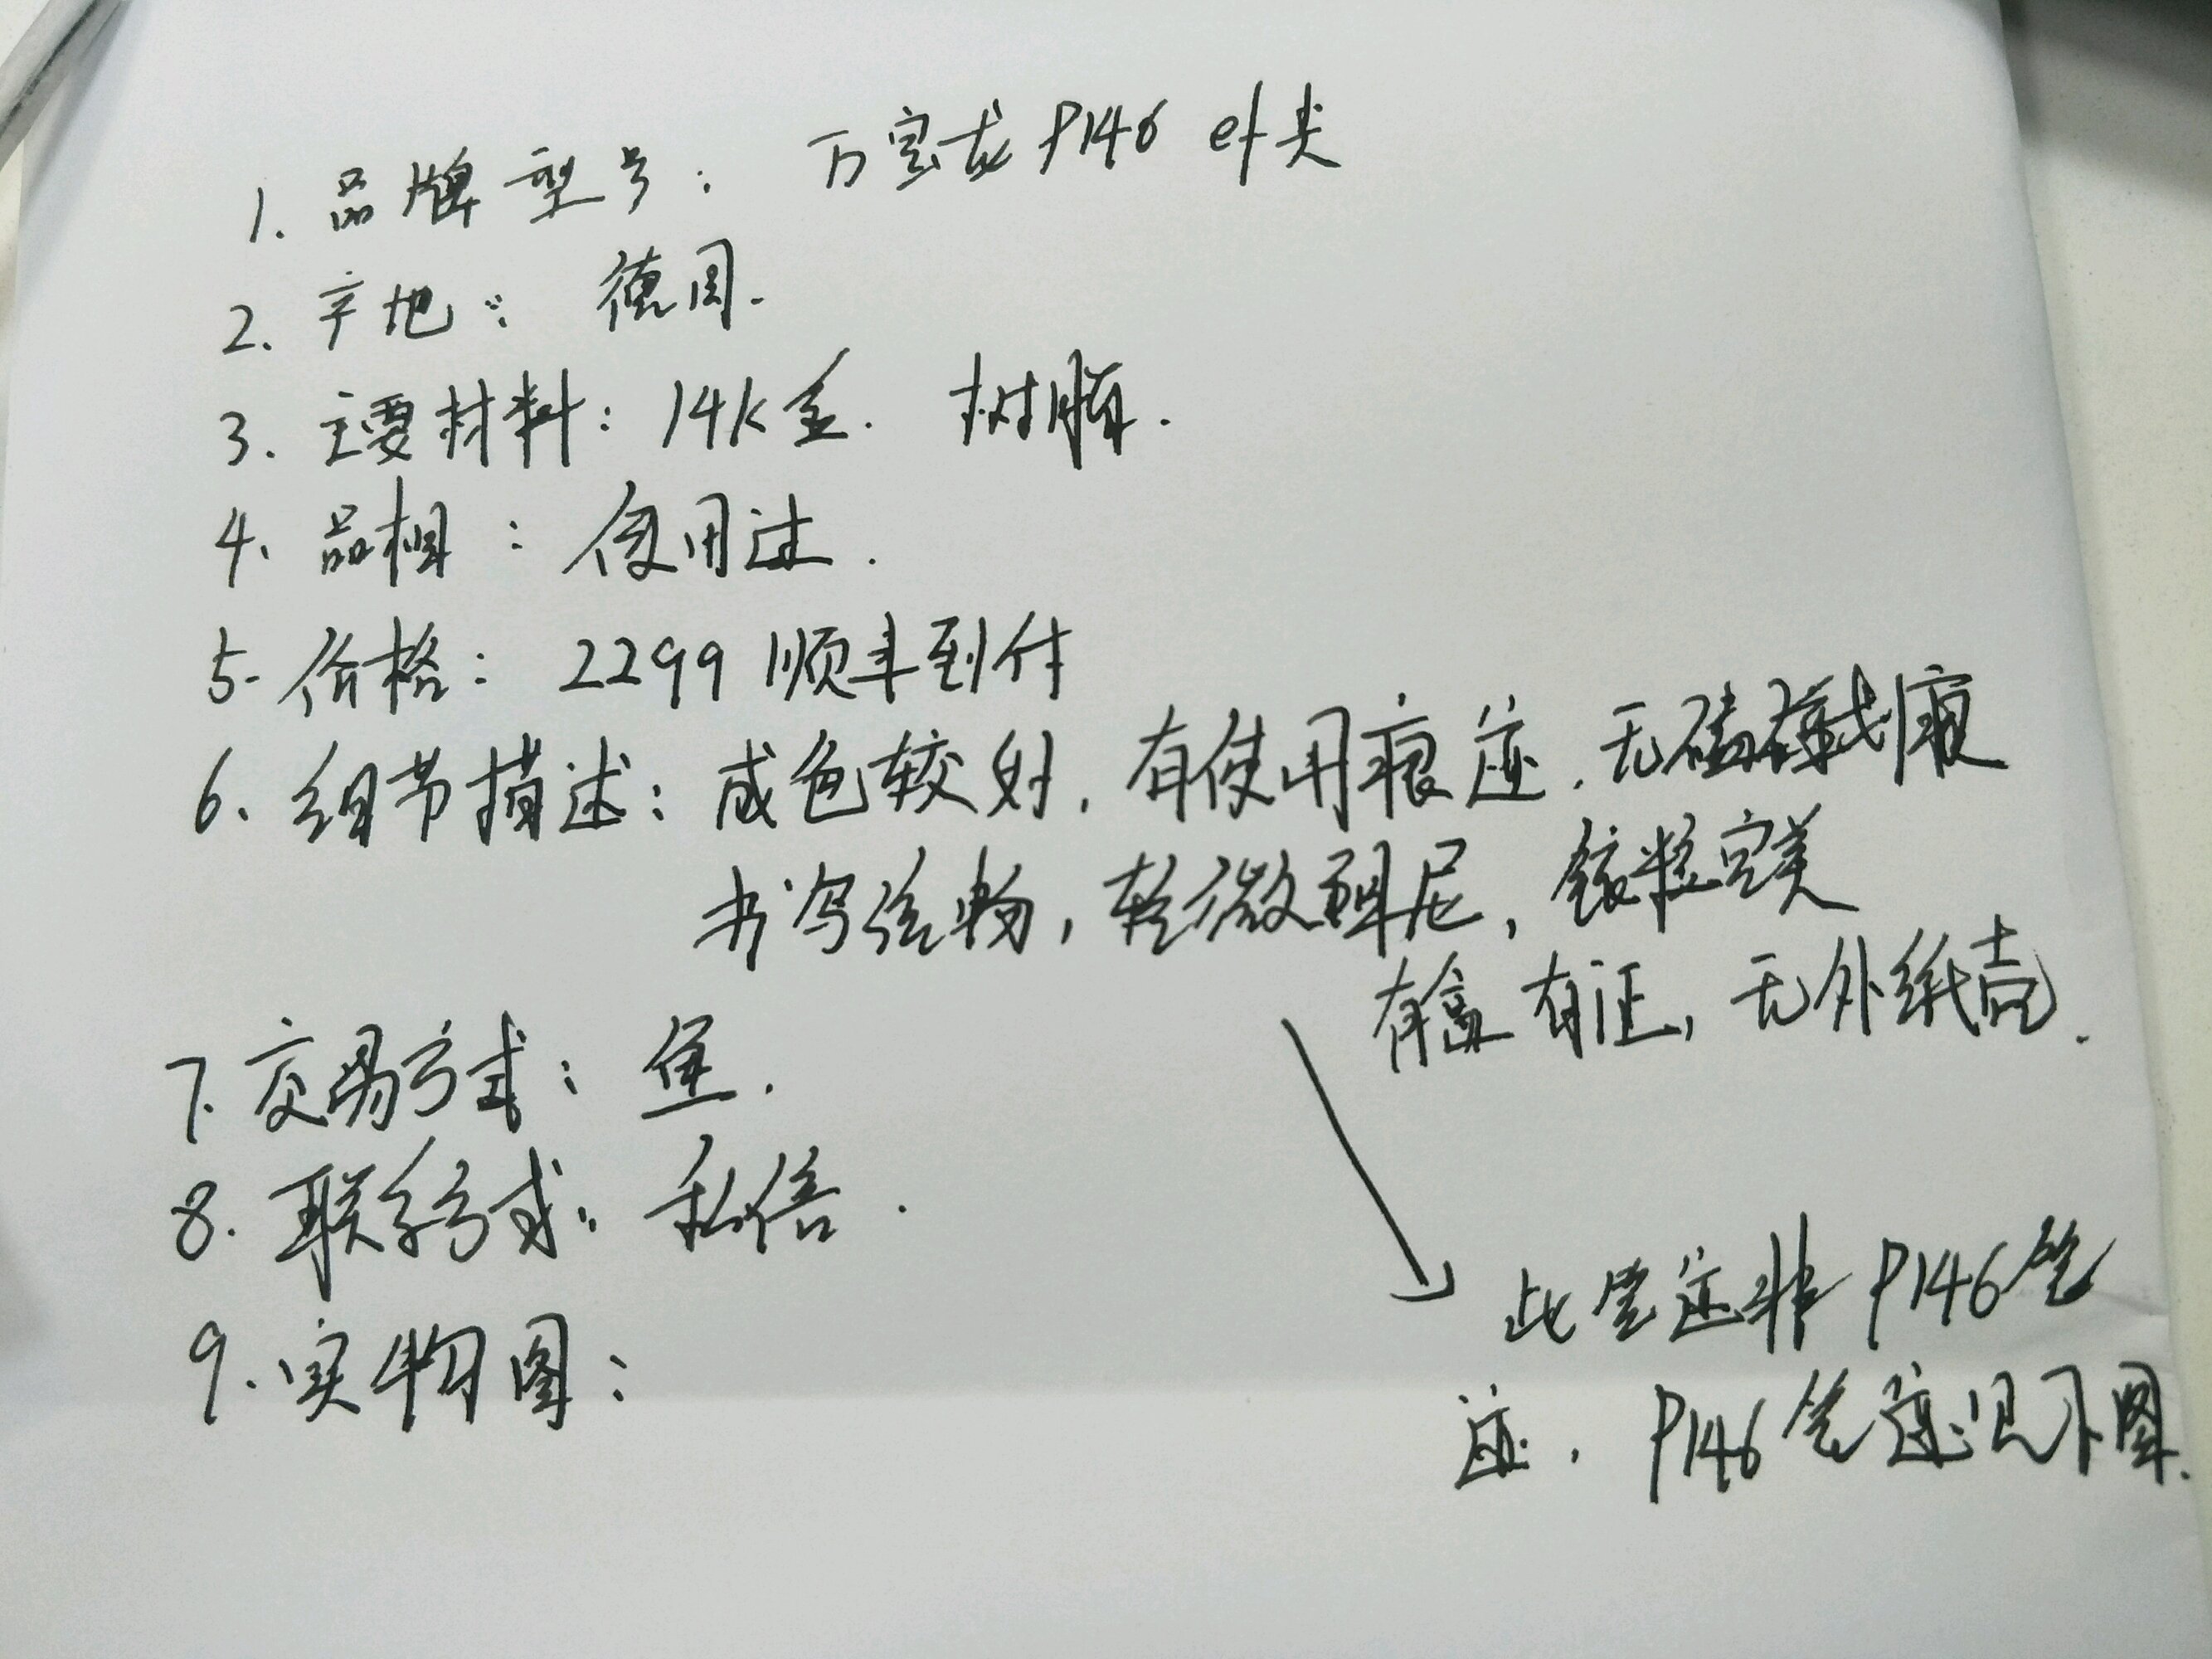 1. 品牌型号: 万宝龙P146 ef尖
2. 产地: 德国.
3. 主要材料: 14K金. 树脂.
4. 品相: 使用过.
5. 价格: 2299 顺丰到付
6. 细节描述: 成色较好, 有使用痕迹, 无磕碰划痕
书写流畅, 轻微阻尼, 铱粒完美
有盒有证, 无外纸壳.
7. 交易方式: 鱼.
8. 联系方式: 私信.
9. 实物图:
此笔迹非P146笔
迹, P146笔迹见下图.